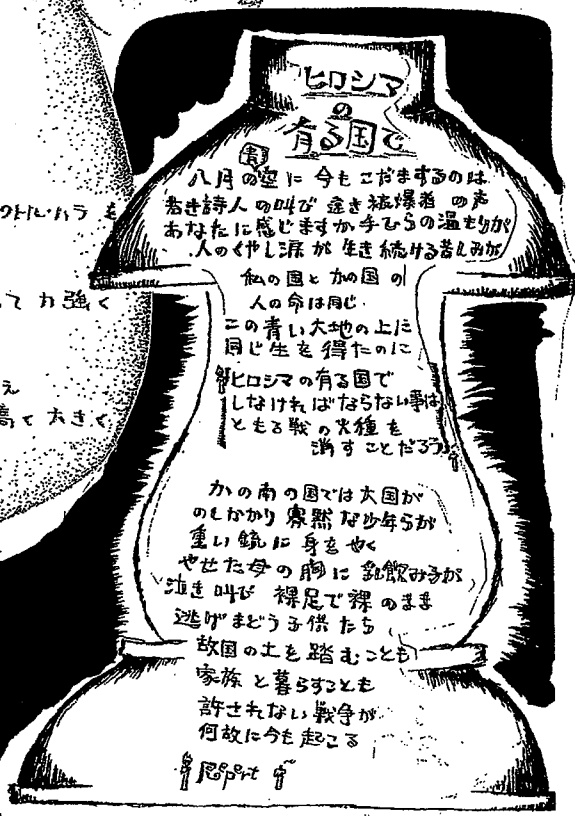 ヒロシマ
の
有る国で
八月の青空に 今もこだまするのは
若き詩人の叫び 遠き被爆者の声
あなたに感じますか 手ひらの温もりが
人のくやし涙が 生き続ける苦しみが
私の国と かの国の
人の命は同じ
この青い大地の上に
同じ生を得たのに
ヒロシマの有る国で
しなければならない事は
ともる戦の火種を
消すことだろう
かの南の国では 大国が
のしかかり 寡黙な少年らが
重い銃に 身をやく
やせた母の胸に 乳飲み子が
泣き叫び 裸足で裸のまま
逃げまどう子供たち
故国の土を踏むことも
家族と暮らすことも
許されない戦争が
何故に今も起こる
Repeat
トル・ハラ を
って 力強く
え
高く 大きく